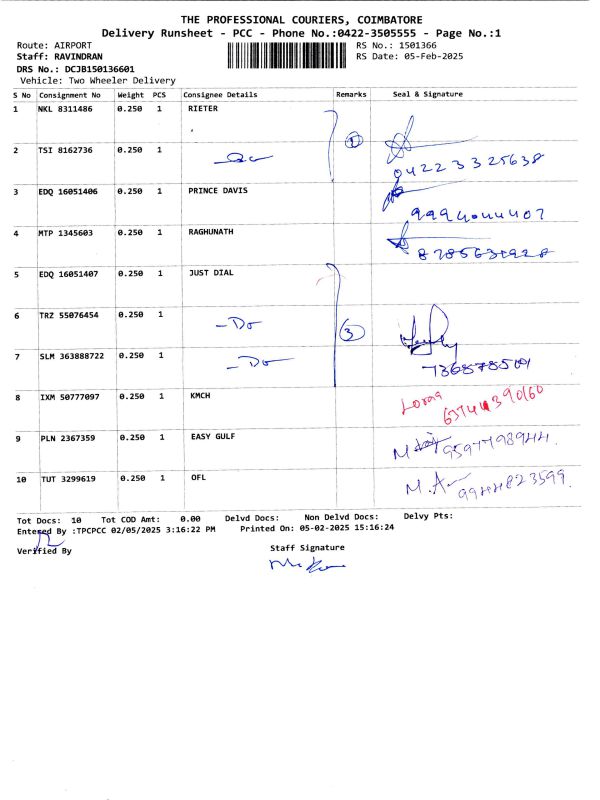 THE PROFESSIONAL COURIERS, COIMBATORE
Delivery Runsheet - PCC - Phone No.:0422-3505555 - Page No.:1
Route: AIRPORT RS No.: 1501366
Staff: RAVINDRAN RS Date: 05-Feb-2025
DRS No.: DCJB150136601
Vehicle: Two Wheeler Delivery
S No Consignment No Weight PCS Consignee Details Remarks Seal & Signature
1 NKL 8311486 0.250 1 RIETER
2 TSI 8162736 0.250 1 1
0422 3325638
3 EDQ 16051406 0.250 1 PRINCE DAVIS
4 MTP 1345603 0.250 1 RAGHUNATH
5 EDQ 16051407 0.250 1 JUST DIAL
6 TRZ 55076454 0.250 1 -Do 3
7 SLM 363888722 0.250 1 -Do
8 IXM 50777097 0.250 1 KMCH
9 PLN 2367359 0.250 1 EASY GULF
10 TUT 3299619 0.250 1 OFL M.A 9944823599.
Tot Docs: 10 Tot COD Amt: 0.00 Delvd Docs: Non Delvd Docs: Delvy Pts:
Entered By :TPCPCC 02/05/2025 3:16:22 PM Printed On: 05-02-2025 15:16:24
Verified By Staff Signature